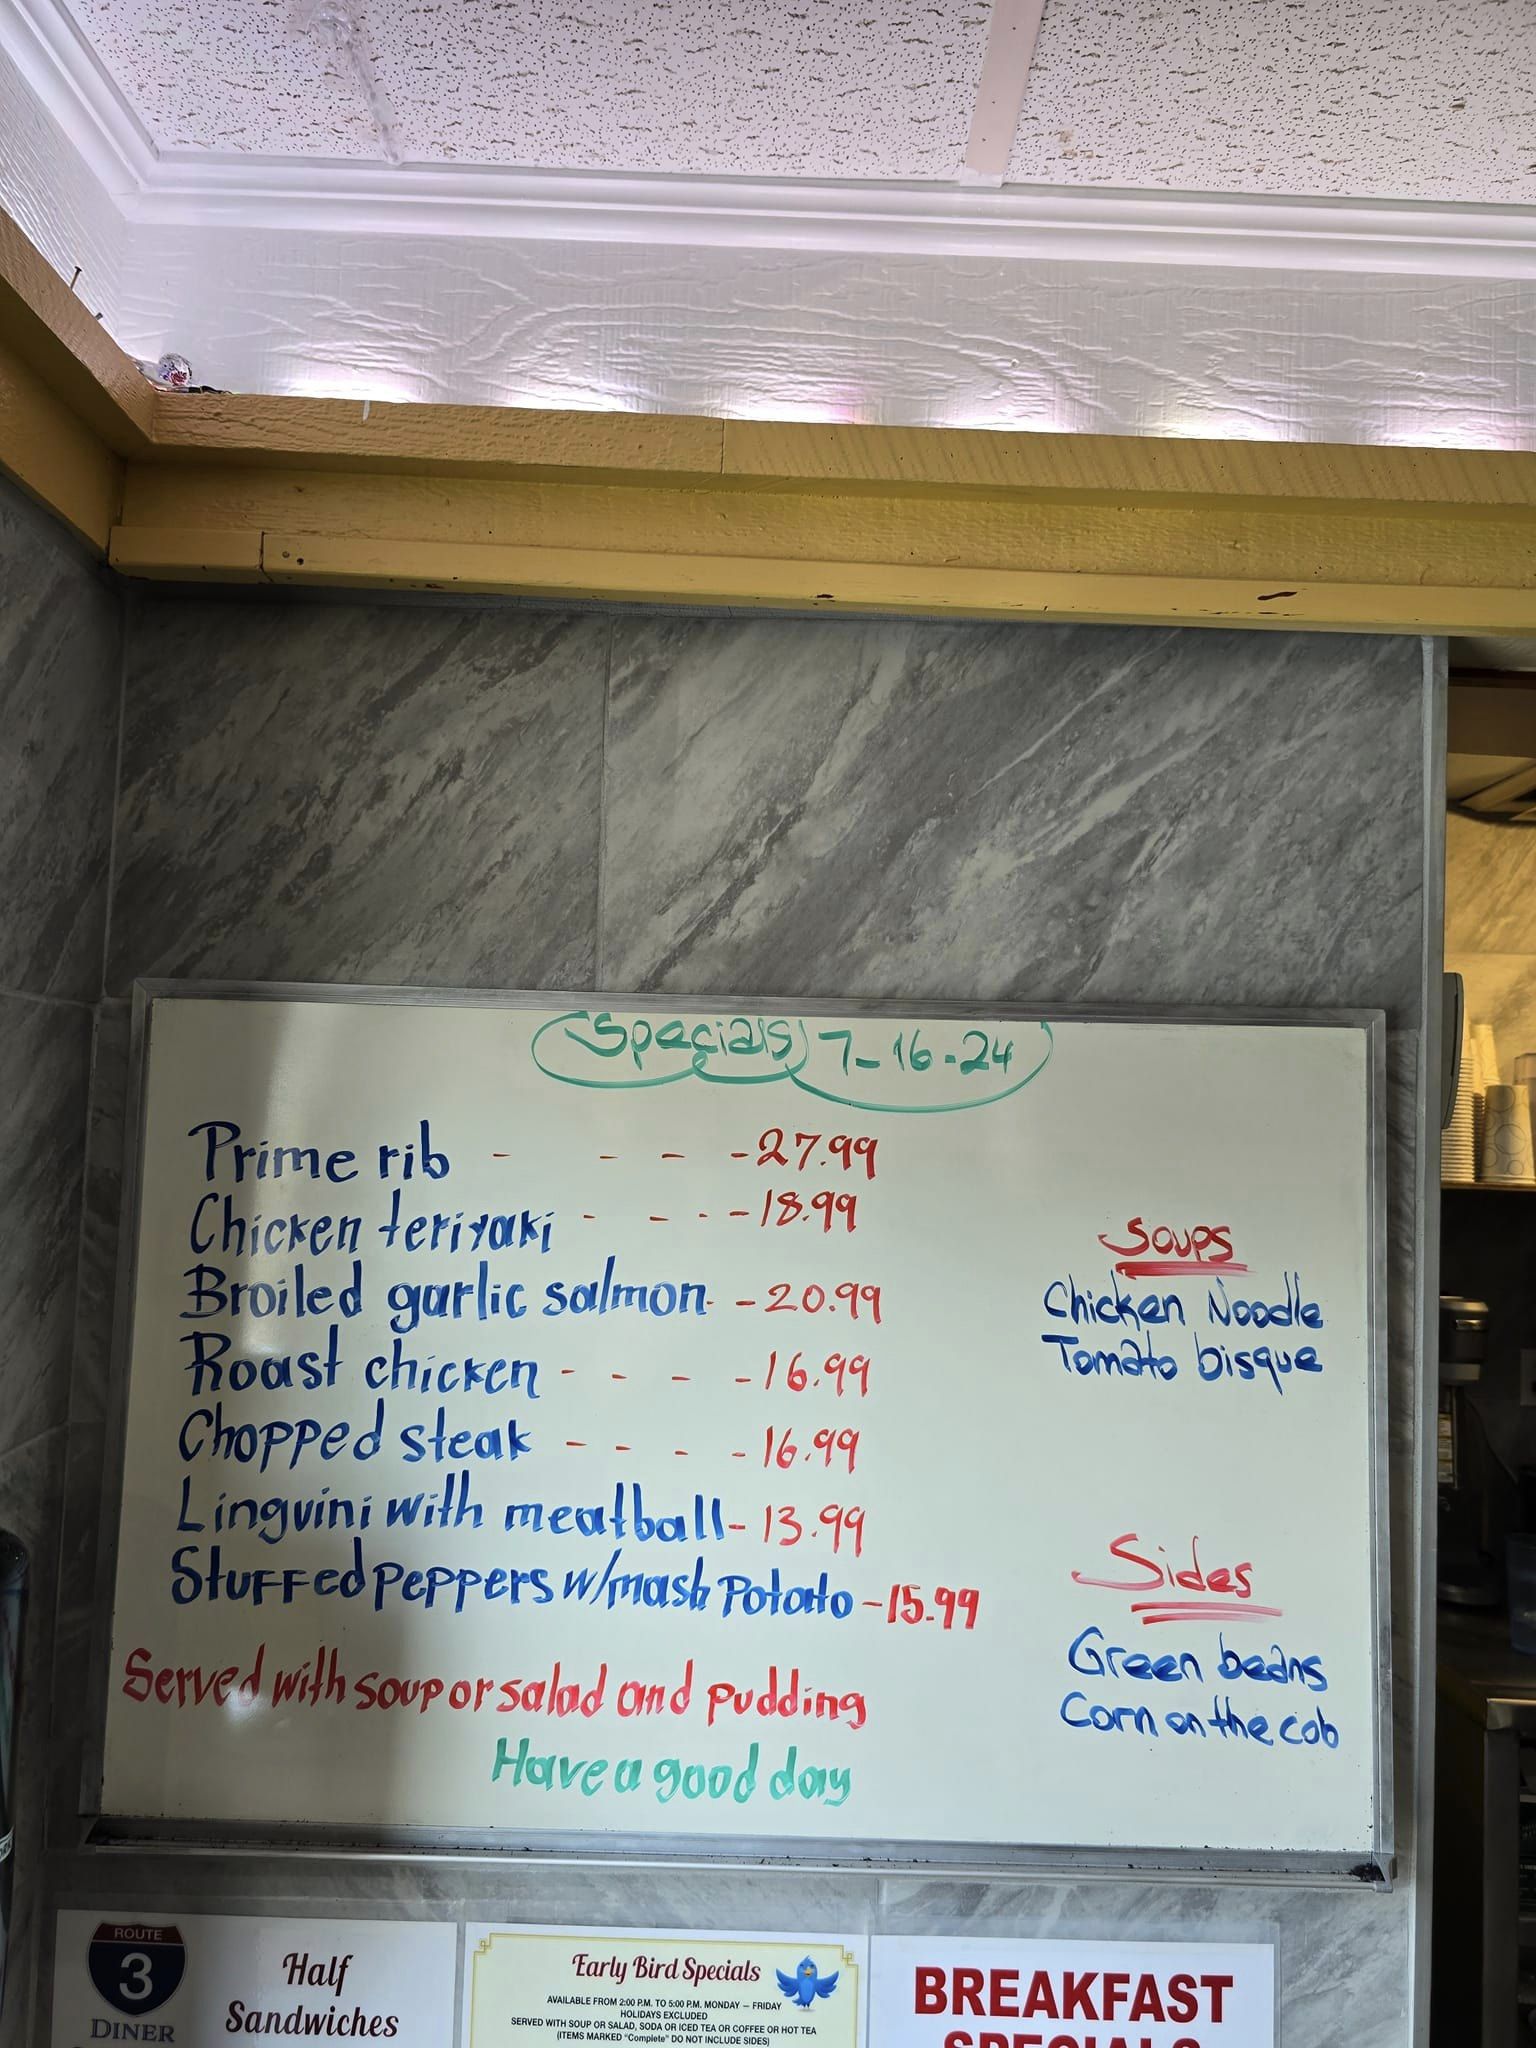 Specials 7-16-24
Prime rib - - - - 27.99
Chicken teriyaki - - - - 18.99
Broiled garlic salmon - - 20.99
Roast chicken - - - - 16.99
Chopped steak - - - - 16.99
Linguini with meatball - 13.99
Stuffed peppers w/mash potato - 15.99
Served with soup or salad and pudding
Have a good day
Soups
Chicken Noodle
Tomato bisque
Sides
Green beans
Corn on the cob
ROUTE
3
DINER
Half
Sandwiches
Early Bird Specials
AVAILABLE FROM 2:00 P.M. TO 5:00 P.M. MONDAY – FRIDAY
HOLIDAYS EXCLUDED
SERVED WITH SOUP OR SALAD, SODA OR ICED TEA OR COFFEE OR HOT TEA
(ITEMS MARKED "Complete" DO NOT INCLUDE SIDES)
BREAKFAST
SPECIALS